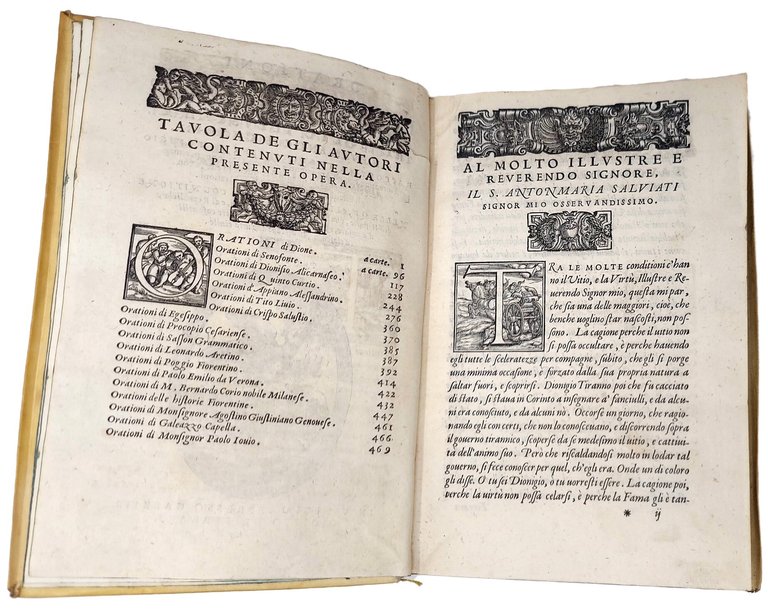 TAVOLA DE GLI AVTORI
CONTENVTI NELLA
PRESENTE OPERA.
ORATIONI di Dione. a carte. 1
Orationi di Senofonte. a carte. 96
Orationi di Dionisio Alicarnaseo. 117
Orationi di Quinto Curtio. 228
Orationi d'Appiano Alessandrino. 244
Orationi di Tito Liuio. 276
Orationi di Crispo Salustio. 360
Orationi di Egesippo. 370
Orationi di Procopio Cesariense. 385
Orationi di Sasson Grammatico. 387
Orationi di Leonardo Aretino. 392
Orationi di Poggio Fiorentino. 414
Orationi di Paolo Emilio da Verona. 422
Orationi di M. Bernardo Corio nobile Milanese. 432
Orationi delle historie Fiorentine. 447
Orationi di Monsignore Agostino Giustiniano Genouese. 461
Orationi di Galeazzo Capella. 466
Orationi di Monsignor Paolo Iouio. 469
AL MOLTO ILLVSTRE E
REVERENDO SIGNORE,
IL S. ANTONMARIA SALVIATI
SIGNOR MIO OSSERVANDISSIMO.
TRA LE MOLTE conditioni c'han
no il Uitio, e la Virtù, Illustre e Re
uerendo Signor mio, questa mi par
che sia una delle maggiori, cioè, che
benche uoglino star nascosti, non pos
sono. La cagione perche il uitio non
si possa occultare, è perche hauendo
egli tutte le sceleratezze per compagne, subito, che gli si porge
una minima occasione, è forzato dalla sua propria natura a
saltar fuori, e scoprirsi. Dionigio Tiranno poi che fu cacciato
di stato, si staua in Corinto a insegnare a' fanciulli, e da al-
cuni era conosciuto, e da alcuni nò. Occorse un giorno, che ragio
nando egli con certi, che non lo conosceuano, e discorrendo sopra
il gouerno tirannico, scoperse da se medesimo il uitio, e cattiui
tà dell'animo suo. Però che riscaldandosi molto in lodar tal
gouerno, si fece conoscer per quel, ch'egli era. Onde un di coloro
gli disse. O tu sei Dionigio, o tu uorresti essere. La cagione poi,
perche la virtù non possa celarsi, è perche la Fama gli è tan-
* ij